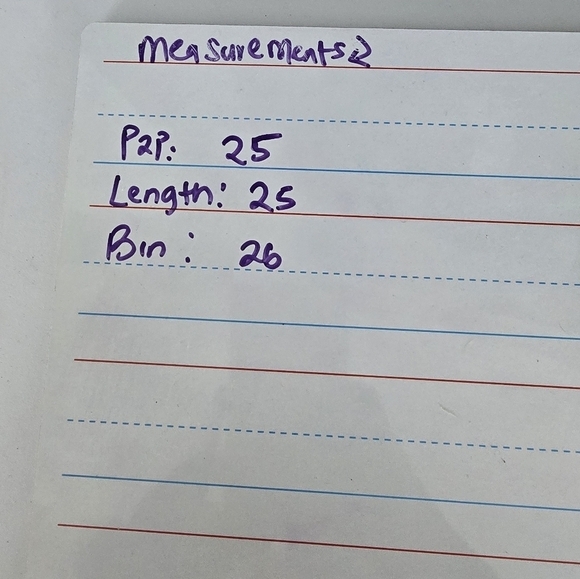 Measurements
P2P: 25
Length: 25
Bin: 26